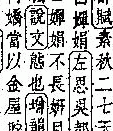 賦素秋二七
娟左思吳都
嬋娟不長妍
說文態也增韻
嬌當以金屋貯